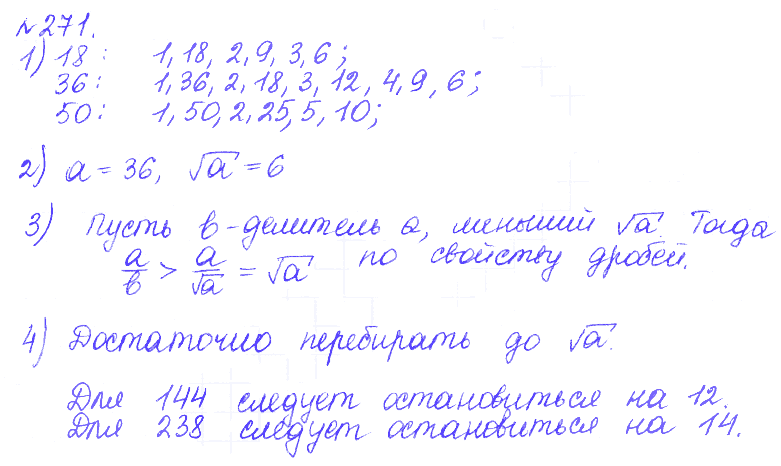 №271.
1) 18: 1, 18, 2, 9, 3, 6;
36: 1, 36, 2, 18, 3, 12, 4, 9, 6;
50: 1, 50, 2, 25, 5, 10;
2) a = 36, √a = 6
3) Пусть b - делитель a, меньший √a. Тогда
a/b > a/√a = √a по свойству дробей.
4) Достаточно перебирать до √a.
Для 144 следует остановиться на 12.
Для 238 следует остановиться на 14.